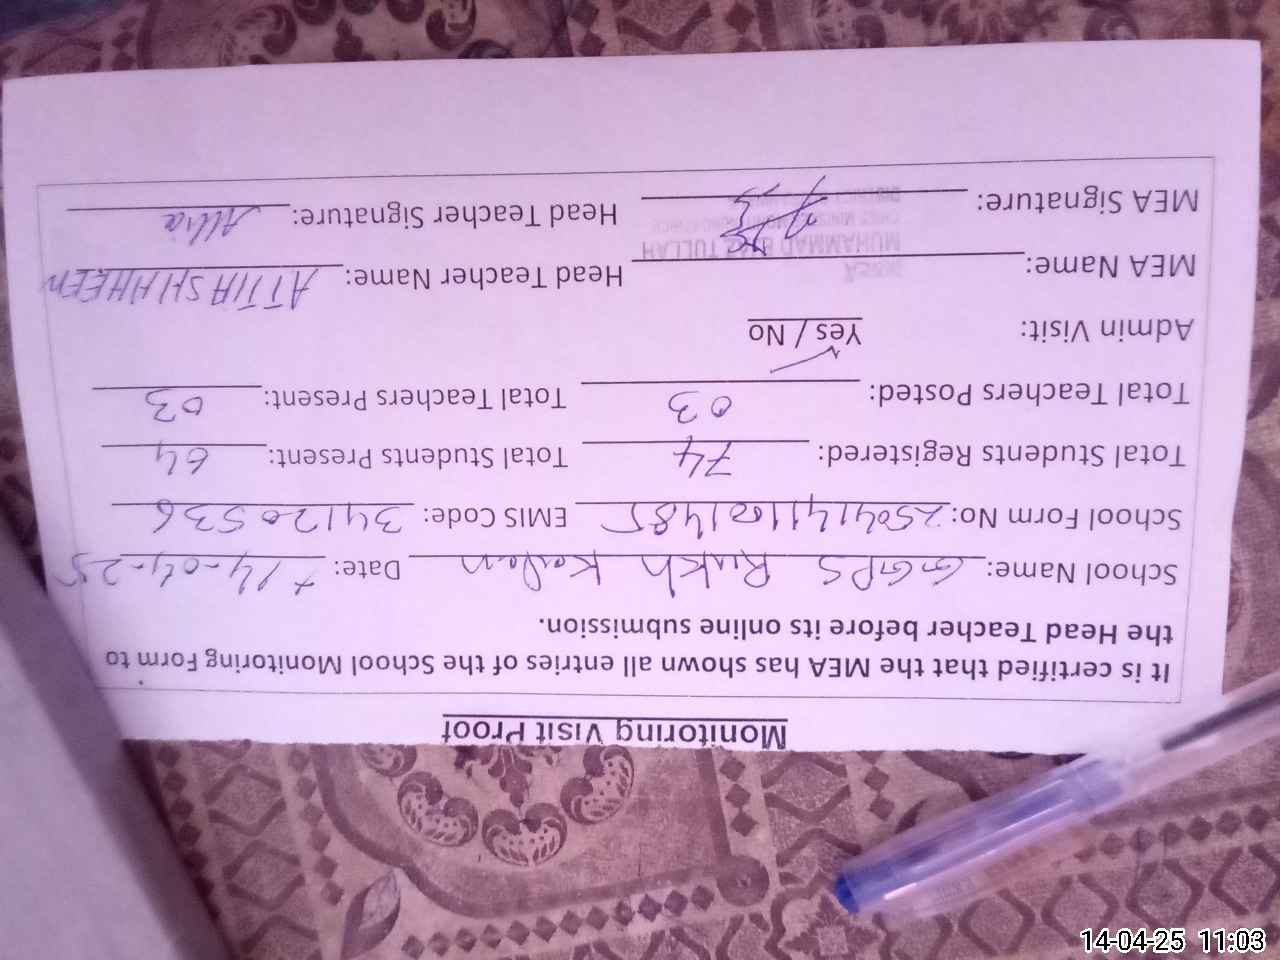 Monitoring Visit Proof
It is certified that the MEA has shown all entries of the School Monitoring Form to
the Head Teacher before its online submission.
School Name: GGPS Rukh Kalan Date: 14-04-25
School Form No: 25041411001485 EMIS Code: 34120536
Total Students Registered: 74 Total Students Present: 64
Total Teachers Posted: 03 Total Teachers Present: 03
Admin Visit: Yes / No
MEA Name: MUHAMMAD TULLAH Head Teacher Name: ATTIA SHAHEEN
MEA Signature: Head Teacher Signature: Attia
14-04-25 11:03